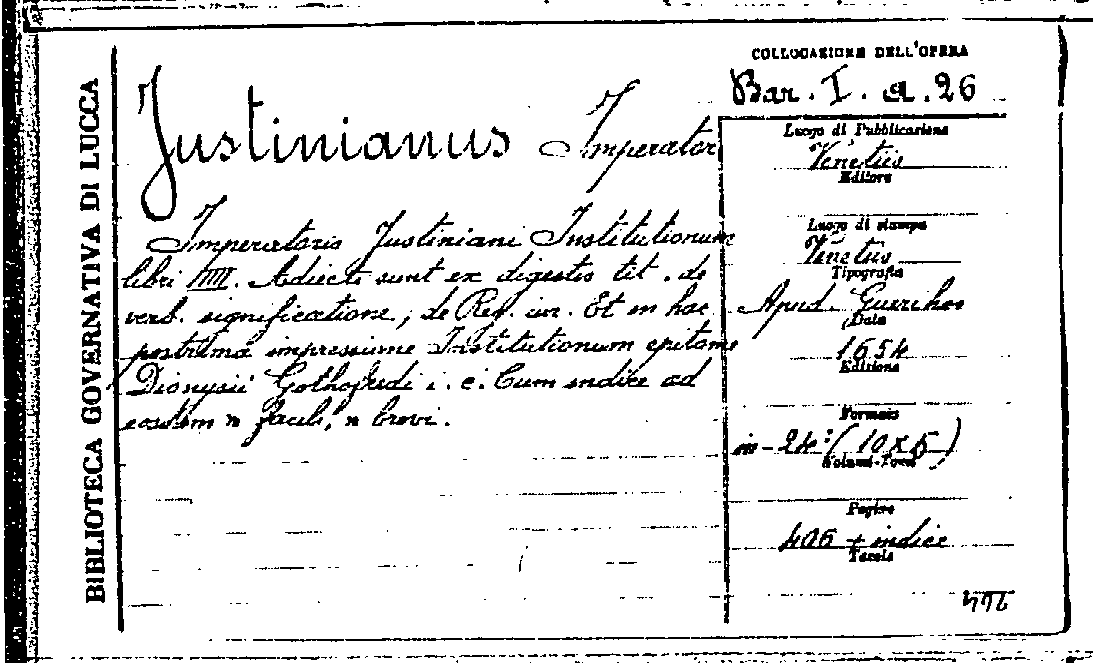 BIBLIOTECA GOVERNATIVA DI LUCCA
Justinianus Imperator
Imperatoris Justiniani Institutionum
libri IIII. Adiecti sunt ex digestis tit. de
verb. significatione, de Reg. iur. Et in hac
postrema impressione Institutionum epitome
Dionysii Gothofredi i. c. Cum indice ad
eosdem n facili, n brevi.
COLLOCAZIONE DELL'OPERA
Bar. I. a. 26
Luogo di Pubblicazione
Venetiis
Editore
Luogo di stampa
Venetiis
Tipografia
Apud Guerilios
Data
1654
Edizione
Formato
in-24° (10x5)
Volumi-Tomi
Pagine
406 + indice
Tavole